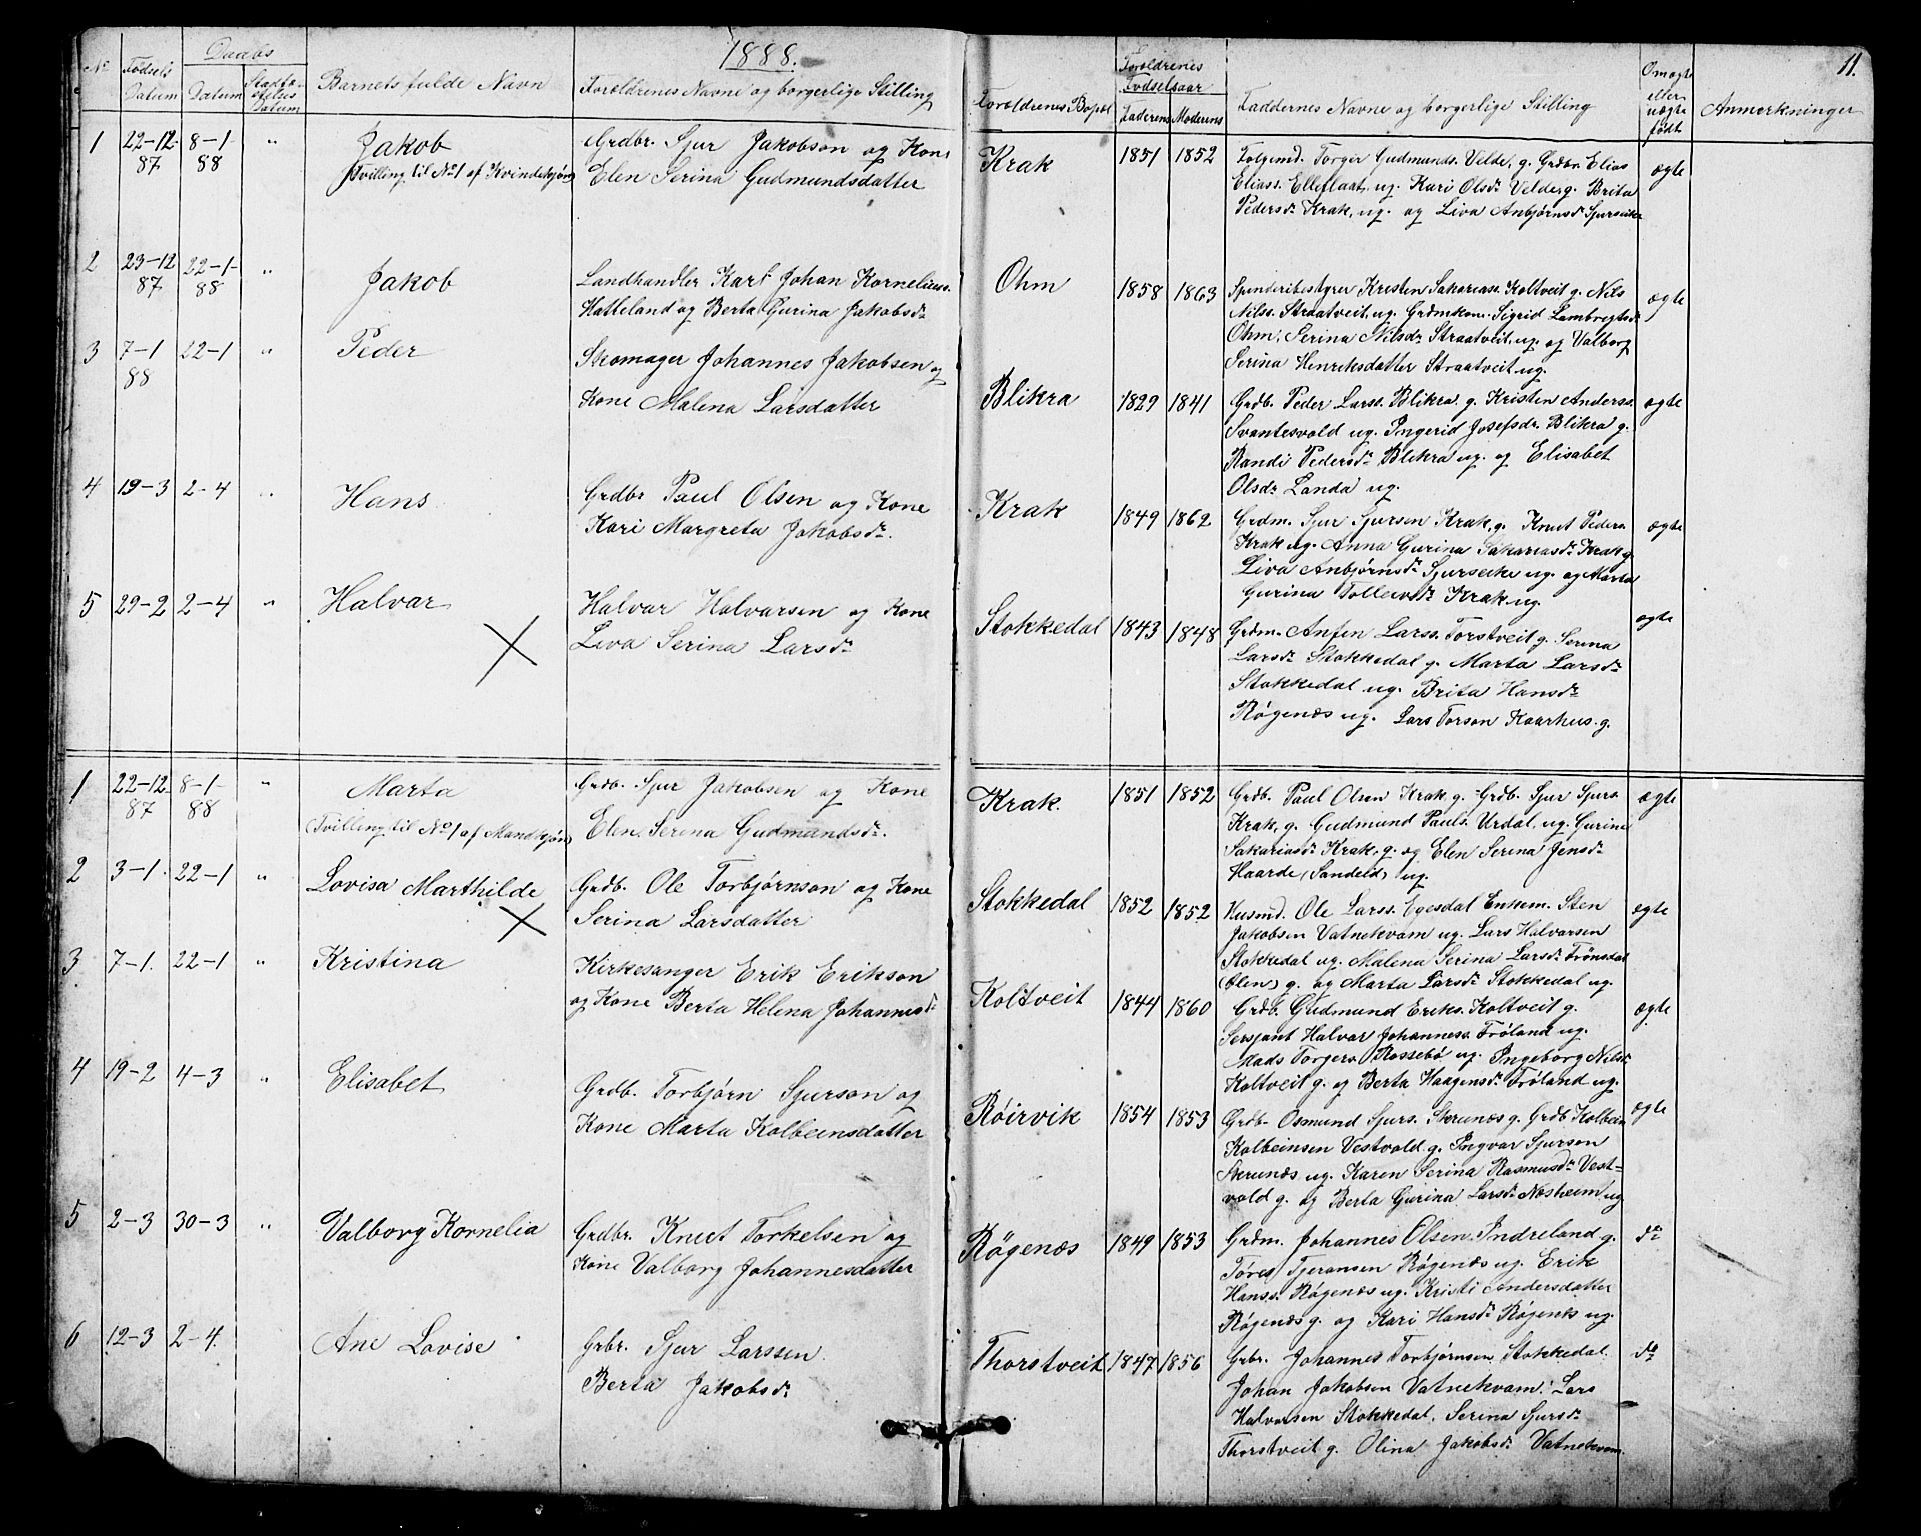 1888.
11.
No
Fødsels Datum
Daabs
Datum
Stadfæstelses Datum
Barnets fulde Navn
Forældrenes Navne og borgerlige Stilling
Forældrenes Bopæl
Forældrenes Fødselsaar
Faderens
Moderens
Faddernes Navne og borgerlige Stilling
Om ægte eller uægte født
Anmærkninger
1 22-12 87 8-1 88 " Jakob
(Tvilling til No 1 af Kvindekjøn)
Grdbr. Sjur Jakobson og Kone
Elen Serina Gudmundsdatter
Krak 1851 1852
Folgemd. Torger Gudmunds. Velde, g. Grdbr. Elias
Eliass. Elleflaat, ug. Kari Olsdr Velde, g. Brita
Pedersdr Krak, ug. og Liva Anbjørnsdr Sjurseike
ægte
2 23-12 87 22-1 88 " Jakob
Landhandler Karl Johan Korneliuss.
Hatteland og Berta Gurina Jakobsdr
Ohm 1858 1863
Spinderibestyrer Kristen Sakariass. Koltveit g. Nils
Nilss. Straatveit, ug. Grdmkone Sigrid Lambregtsdr
Ohm, Serina Nilsdr Straatveit, ug. og Valborg
Serina Henriksdatter Straatveit ug.
ægte
3 7-1 88 22-1 " Peder
Skomager Johannes Jakobsen og
Kone Malena Larsdatter
Blikra 1829 1841
Grdb. Peder Larss. Blikra g. Kristen Anderss.
Svantesvold ug. Ingerid Josefsdr. Blikra g.
Randi Pedersdr Blikra ug. og Elisabet
Olsdr Landa ug.
ægte
4 19-3 2-4 " Hans
Grdbr Paul Olsen og Kone
Kari Margreta Jakobsdr.
Krak 1849 1862
Grdm. Sjur Sjursen Krak, g. Knut Peders.
Krak ug. Anna Gurina Sakariasdr Krak g.
Liva Anbjørnsdr Sjurseike ug. og Marta
Gurina Tollevsdr Krak ug.
ægte
5 29-2 2-4 " Halvar
Halvar Halvarsen og Kone
Liva Serina Larsdr
Stokkedal 1843 1848
Grdm. Anfin Larss. Torstveit g. Serina
Larsdr Stokkedal g. Marta Larsdr
Stokkedal ug. Brita Hansdr
Røgenæs ug. Lars Torson Kaarhus. g.
ægte
1 22-12 87 8-1 88 " Marta
(Tvilling til No 1 af Mandkjøn)
Grdb. Sjur Jakobsen og Kone
Elen Serina Gudmundsdr.
Krak. 1851 1852
Grdb. Paul Olsen Krak, g. Grdb. Sjur Sjurs.
Krak, g. Gudmund Pauls. Urdal, ug. Gurine
Sakariasdr Krak, g. og Elen Serina Jensdr
Haarde, (Sandeid) ug.
ægte
2 3-1. 22-1 " Lovisa Marthilde
Grdb. Ole Torbjørnson og Kone
Serina Larsdatter
Stokkedal 1852 1852
Husmd. Ole Larss. Egesdal Enkem. Sten
Jakobsen Vatnekvam ug. Lars Halvarsen
Stokkedal ug. Malena Serina Larsdr Frønsdal
(Ølen) g. og Marta Larsdr Stokkedal ug.
ægte
3 7-1. 22-1 " Kristina
Kirkesanger Erik Erikson
og Kone Berta Helena Johannesdr
Koltveit 1844 1860
Grdb. Gudmund Eriks. Koltveit g.
Sersjant Halvar Johanness. Frøland ug.
Mads Torgers. Rossebø ug. Ingeborg Nilsdr
Koltveit g. og Berta Haagensdr Frøland ug.
ægte
4 19-2 4-3 " Elisabet
Grdb. Torbjørn Sjurson og
Kone Marta Kolbeinsdatter
Røirvik 1854 1853
Grdb. Osmund Sjurs. Skrunæs g. Grdb Kolbein
Kolbeinsen Vestvold g. Ingvar Sjurson
Skrunæs ug. Karen Serina Rasmusdr Vest-
vold g. og Berta Gurina Larsdr Næsheim ug
ægte
5 2-3 30-3 " Valborg Kornelia
Grdbr. Knut Torkelsen og
Kone Valborg Johannesdatter
Røgenæs 1849 1853
Grdm. Johannes Olsen Indreland g.
Tøres Tjeransen Røgenæs ug. Erik
Hanss. Røgenæs ug. Kristi Andersdatter
Røgenæs g. og Kari Hansdr Røgenæs ug.
do
6 12-3 2-4. Ane Lovise
Grbr. Sjur Larssen
Berta Jakobsdr
Thorstveit 1847 1856
Grbr. Johannes Torbjørnsen Stokkedal.
Johan Jakobsen Vatnekvam. Lars
Halvorsen Stokkedal, Serina Sjursdr
Thorstveit g. Olina Jakobsdr Vatnekvam.
do